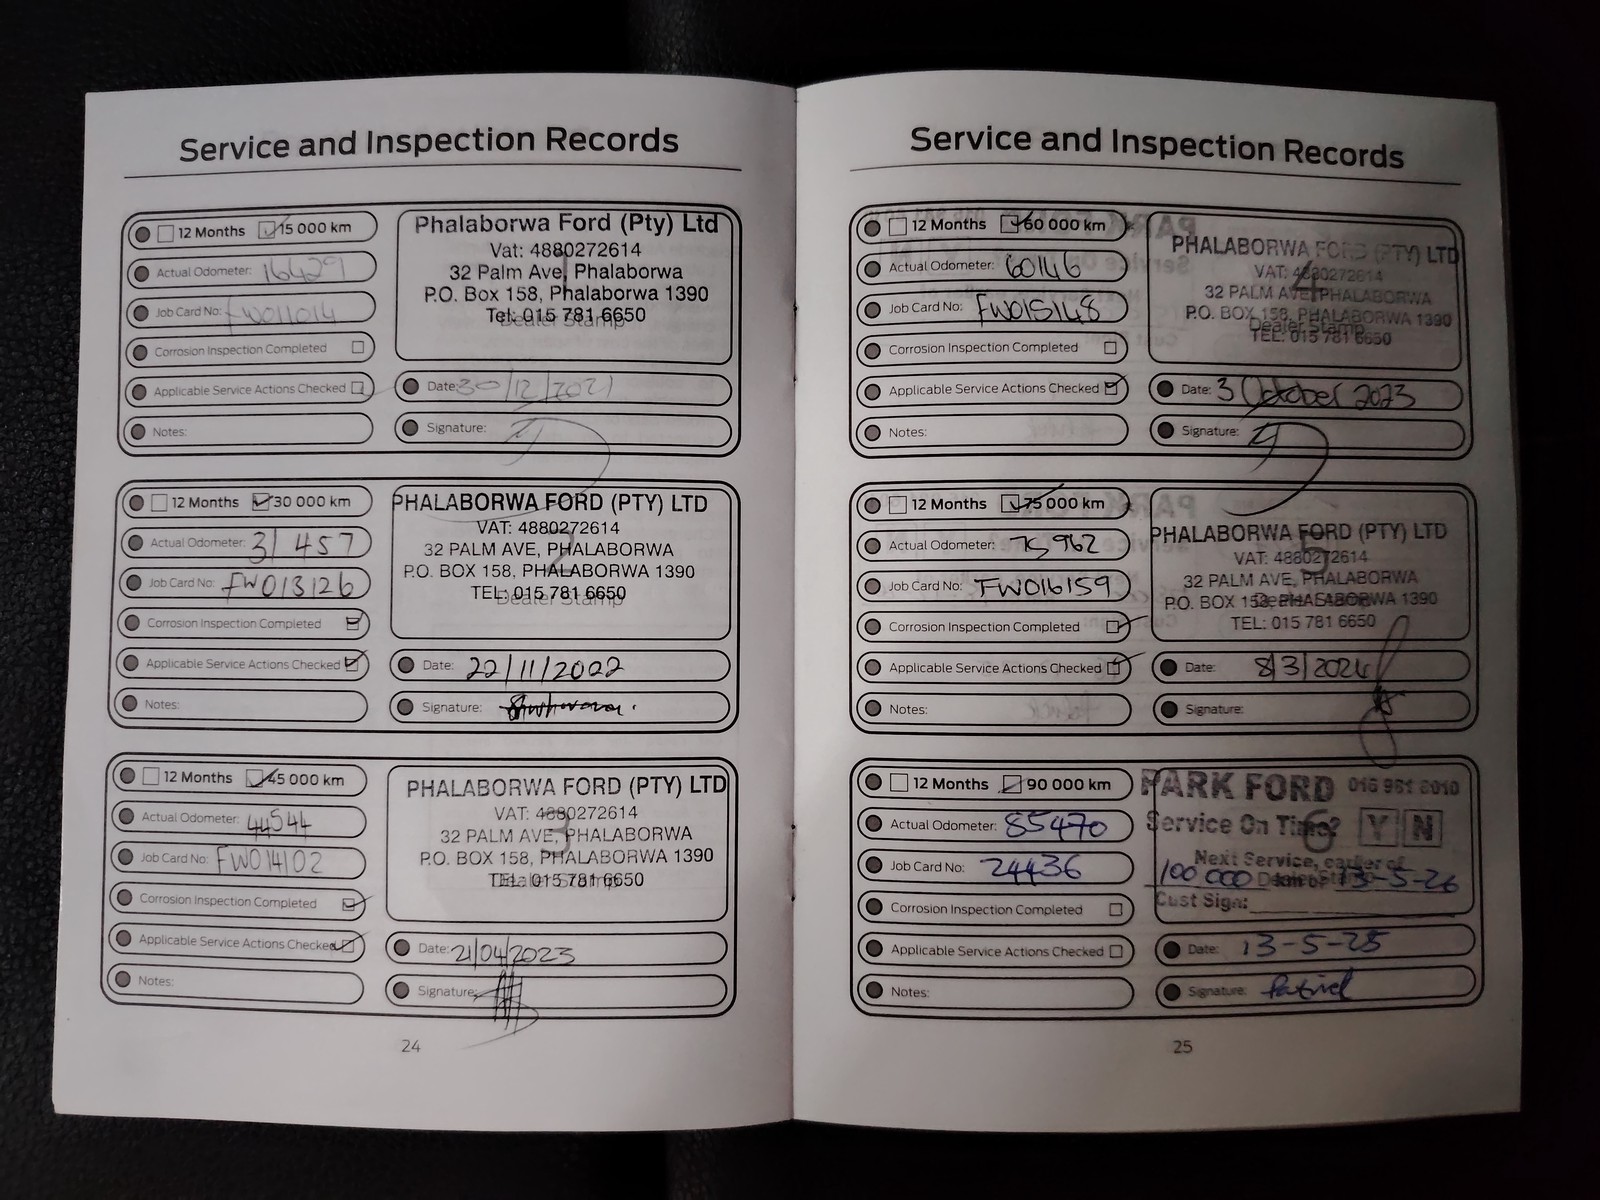 Service and Inspection Records
12 Months 15 000 km
Actual Odometer: 16429
Job Card No: FW011014
Corrosion Inspection Completed
Applicable Service Actions Checked
Notes:
Phalaborwa Ford (Pty) Ltd
1
Vat: 4880272614
32 Palm Ave, Phalaborwa
P.O. Box 158, Phalaborwa 1390
Tel: 015 781 6650
Dealer Stamp
Date: 30/12/2021
Signature:
12 Months 30 000 km
Actual Odometer: 31 457
Job Card No: FW013126
Corrosion Inspection Completed
Applicable Service Actions Checked
Notes:
PHALABORWA FORD (PTY) LTD
2
VAT: 4880272614
32 PALM AVE, PHALABORWA
P.O. BOX 158, PHALABORWA 1390
TEL: 015 781 6650
Dealer Stamp
Date: 22/11/2022
Signature:
12 Months 45 000 km
Actual Odometer: 44544
Job Card No: FW014102
Corrosion Inspection Completed
Applicable Service Actions Checked
Notes:
PHALABORWA FORD (PTY) LTD
3
VAT: 4880272614
32 PALM AVE, PHALABORWA
P.O. BOX 158, PHALABORWA 1390
TEL: 015 781 6650
Dealer Stamp
Date: 21/04/2023
Signature:
24
Service and Inspection Records
12 Months 60 000 km
Actual Odometer: 60146
Job Card No: FW015148
Corrosion Inspection Completed
Applicable Service Actions Checked
Notes:
PHALABORWA FORD (PTY) LTD
4
VAT: 4880272614
32 PALM AVE, PHALABORWA
P.O. BOX 158, PHALABORWA 1390
Dealer Stamp
TEL: 015 781 6650
Date: 3 October 2023
Signature:
12 Months 75 000 km
Actual Odometer: 75962
Job Card No: FW016159
Corrosion Inspection Completed
Applicable Service Actions Checked
Notes:
PHALABORWA FORD (PTY) LTD
5
VAT: 4880272614
32 PALM AVE, PHALABORWA
P.O. BOX 158, PHALABORWA 1390
Dealer Stamp
TEL: 015 781 6650
Date: 8/3/2024
Signature:
12 Months 90 000 km
Actual Odometer: 85470
Job Card No: 24436
Corrosion Inspection Completed
Applicable Service Actions Checked
Notes:
PARK FORD 016 981 6010
6
Service On Time? Y N
Next Service, earlier of
100 000 km or 13-5-26
Dealer Stamp
Cust Sign:
Date: 13-5-25
Signature: Patrick
25